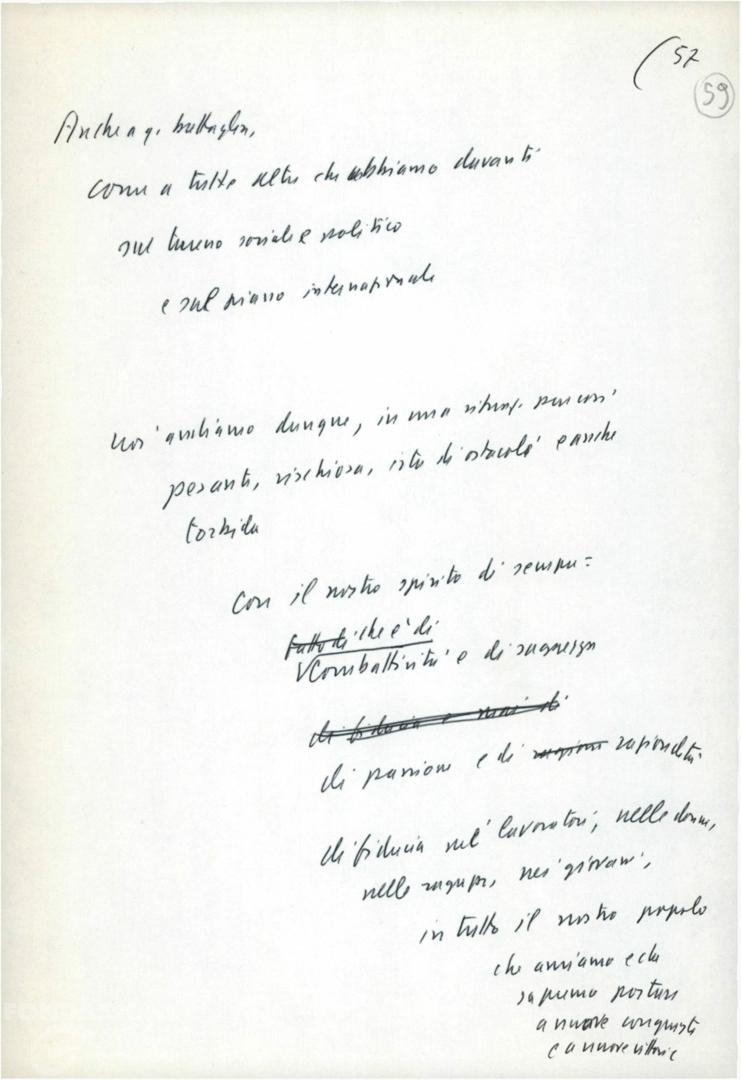 (57
59
Anche a q. battaglia,
come a tutte altre che abbiamo davanti
sul terreno sociale e politico
e sul piano internazionale
Noi andiamo dunque, in una situaz. pur così
pesante, rischiosa, irta di ostacoli e anche
torbida
Con il nostro spirito di sempre:
fatto di che è di
Combattività e di saggezza
di fiducia e mai di
di passione e di ragione razionalità
di fiducia nei lavoratori, nelle donne,
nelle ragazze, nei giovani,
in tutto il nostro popolo
che amiamo e che
sapremo portare
a nuove conquiste
e a nuove vittorie